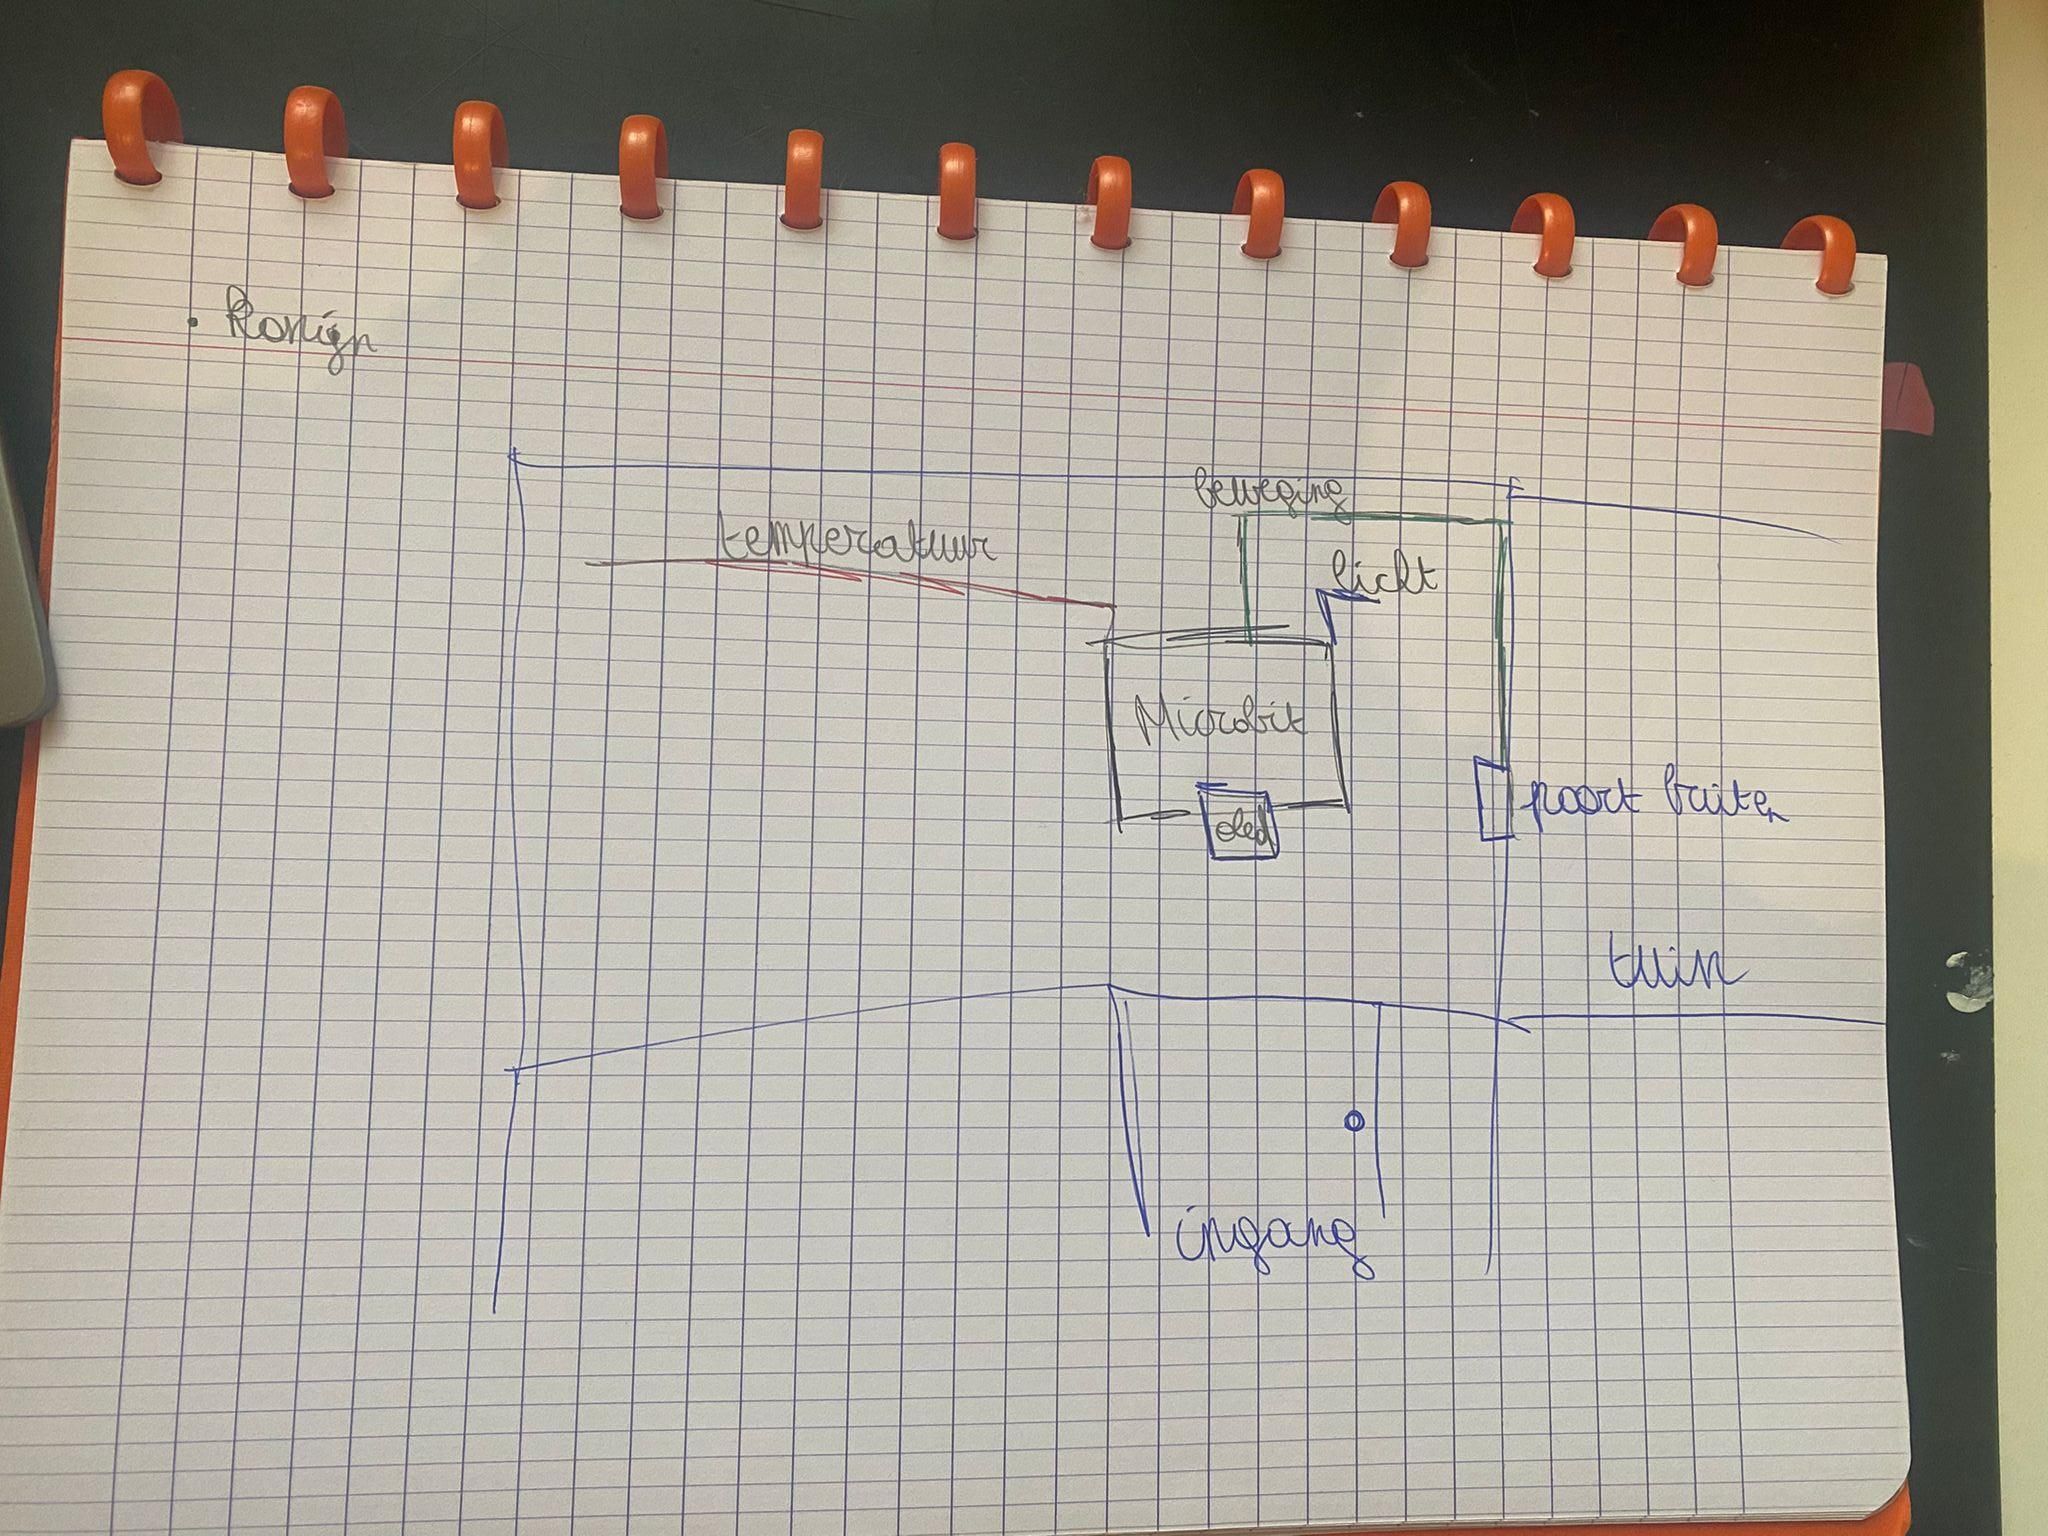 . Konijn
beweging
temperatuur
licht
Microbit
oled
poort buiten
tuin
ingang